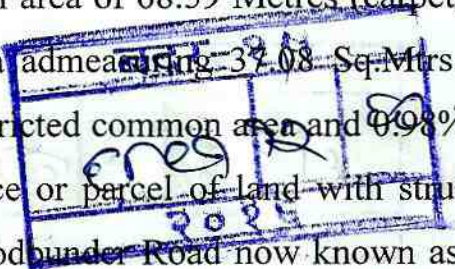 area of 68.59 Metres (carpet
admeasuring 37.08 Sq.Mtrs
ricted common area and 0.98%
ce or parcel of land with stru
२०१५
odbunder Road now known as